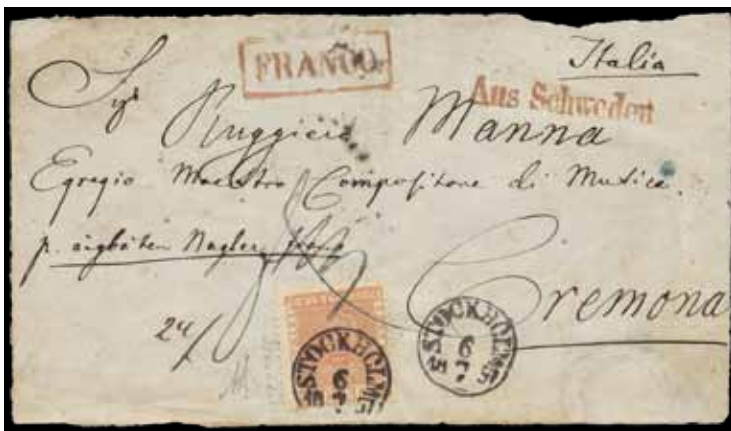 Italia
FRANCO.
Aus Schweden
Sigr Ruggiero Manna
Egregio Maestro Compositore di Musica.
p. ångbåten Nagler
Cremona
STOCKHOLM
6
7
STOCKHOLM
6
7